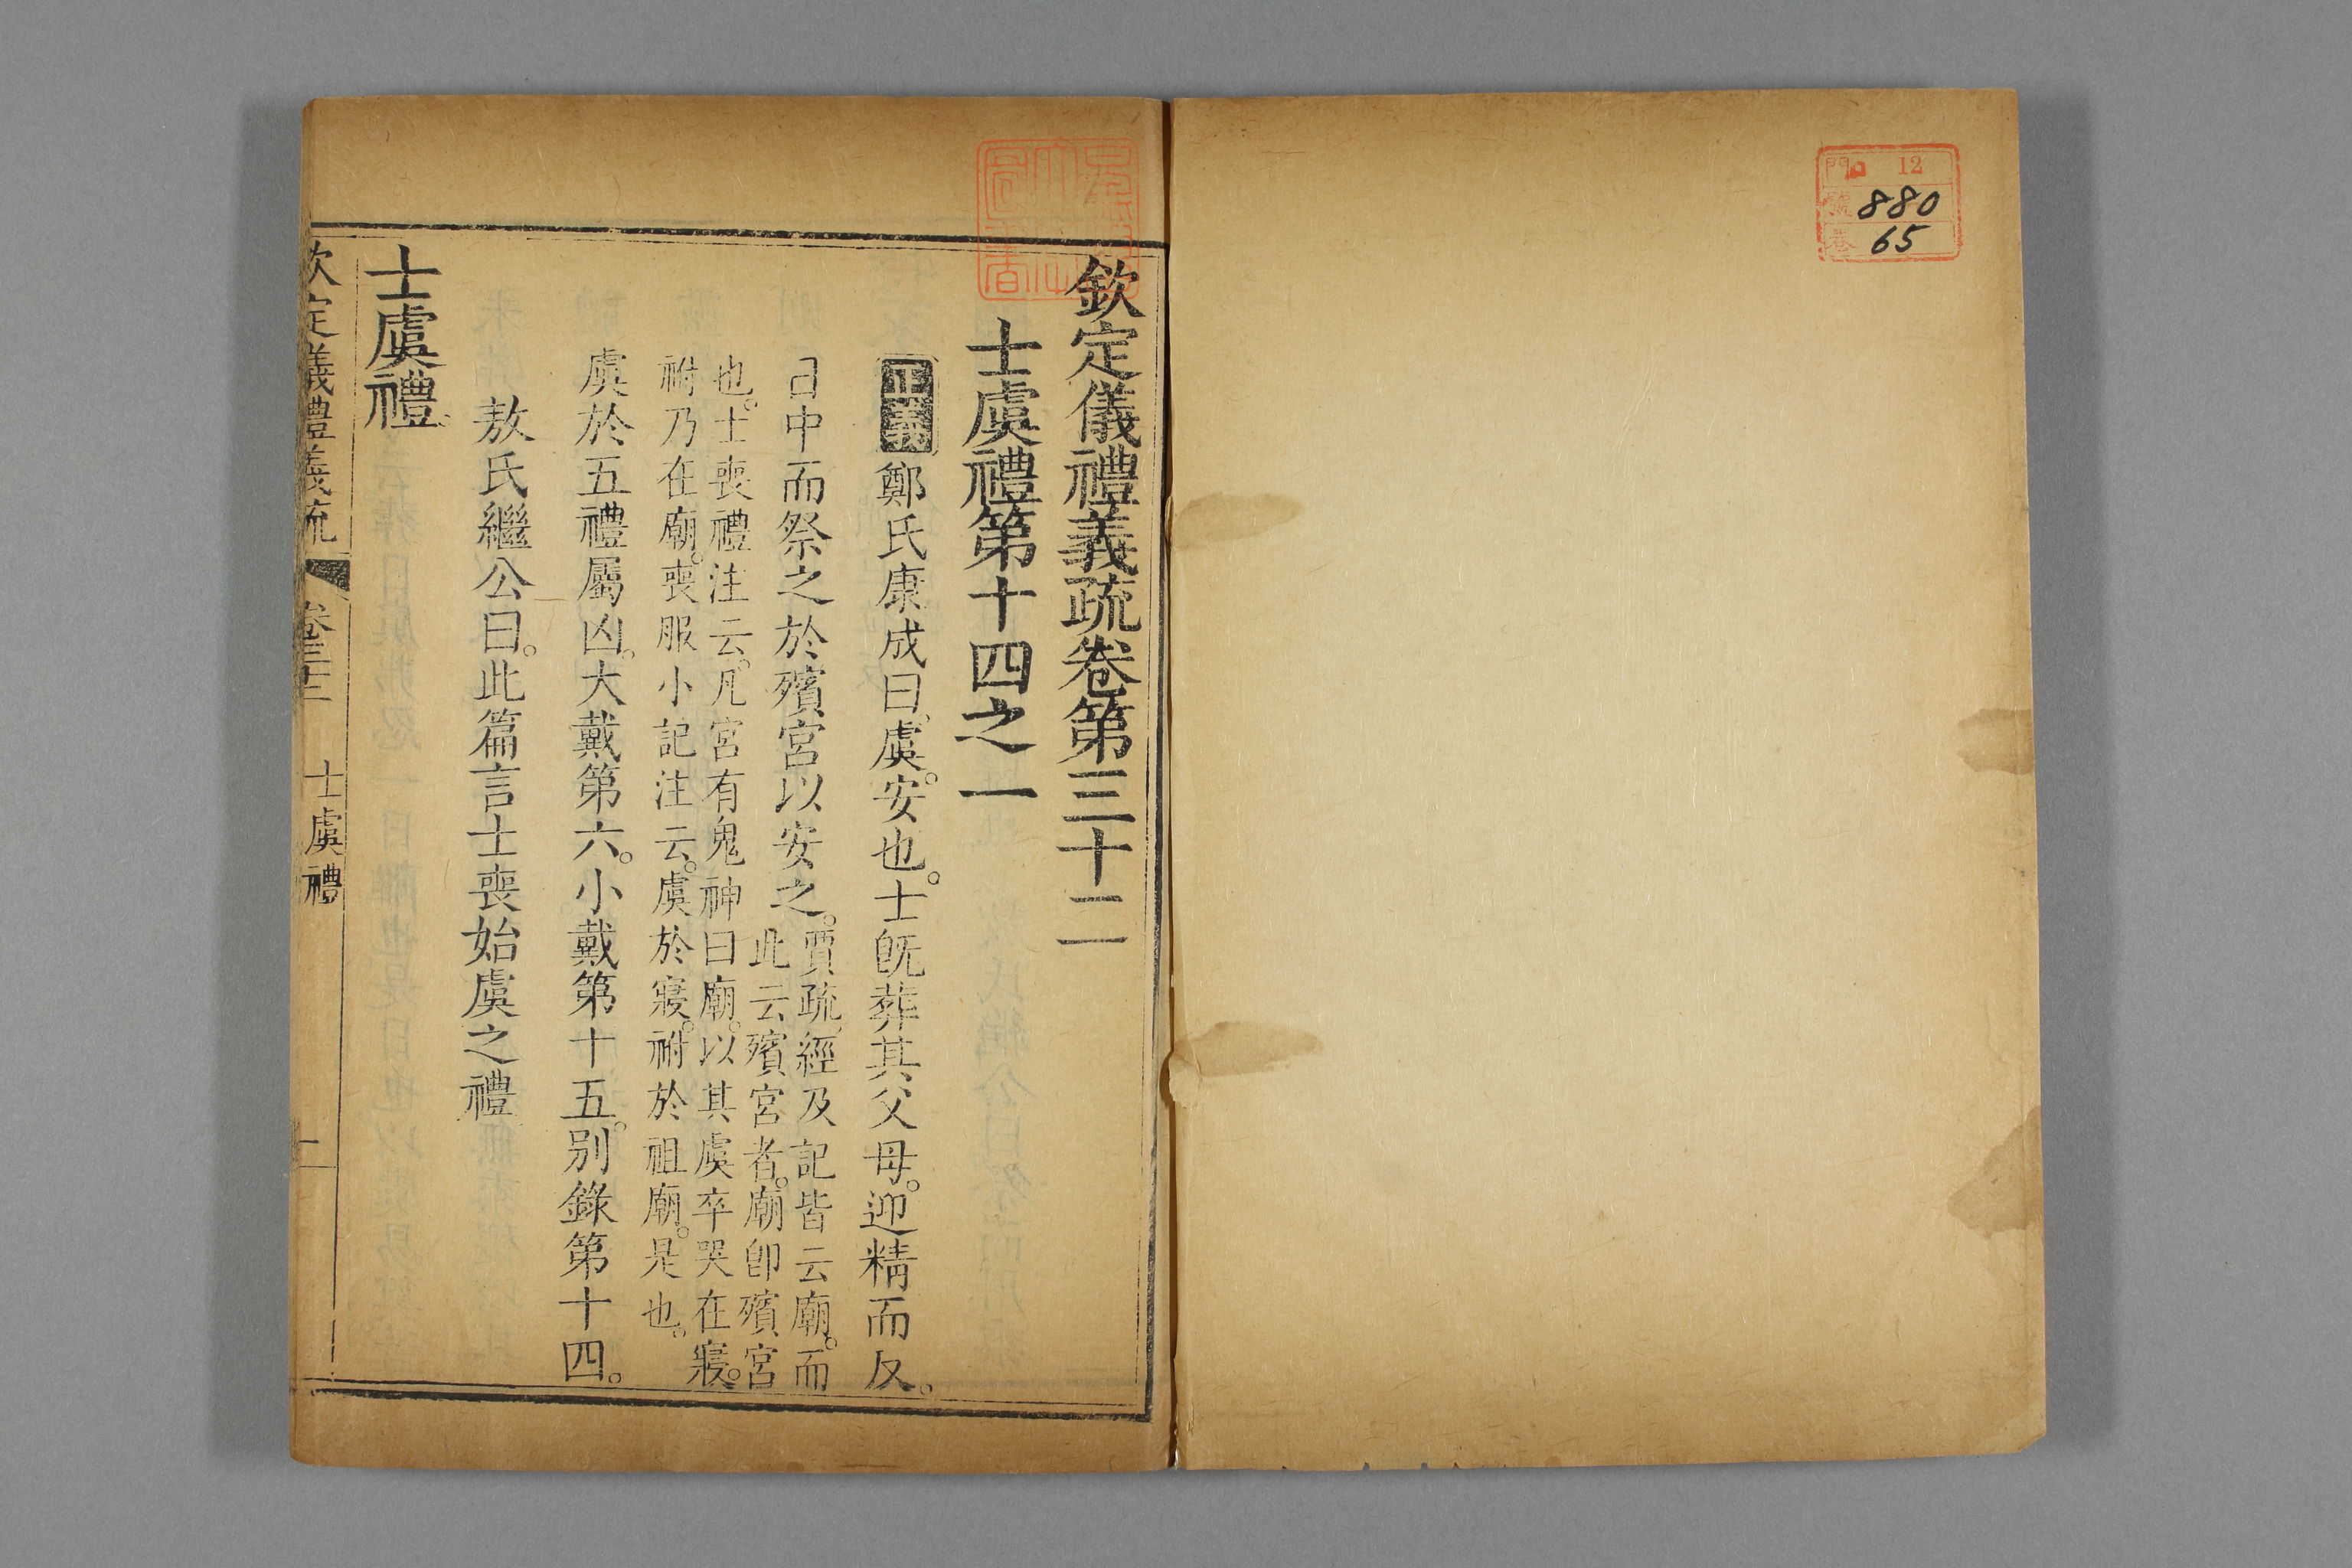 門 12
號 880
卷 65
欽定儀禮義疏卷第三十二
士虞禮第十四之一
正義鄭氏康成曰虞。安也。士旣葬其父母。迎精而反。
日中而祭之於殯宮以安之。
賈疏經及記皆云廟。而
此云殯宮者。廟卽殯宮
也。士喪禮注云。凡宮有鬼神曰廟。以其虞卒哭在寢。
祔乃在廟。喪服小記注云。虞於寢。祔於祖廟。是也。
虞於五禮屬凶。大戴第六。小戴第十五。別錄第十四。
敖氏繼公曰。此篇言士喪始虞之禮
士虞禮。
欽定儀禮義疏 卷三十二 士虞禮 一